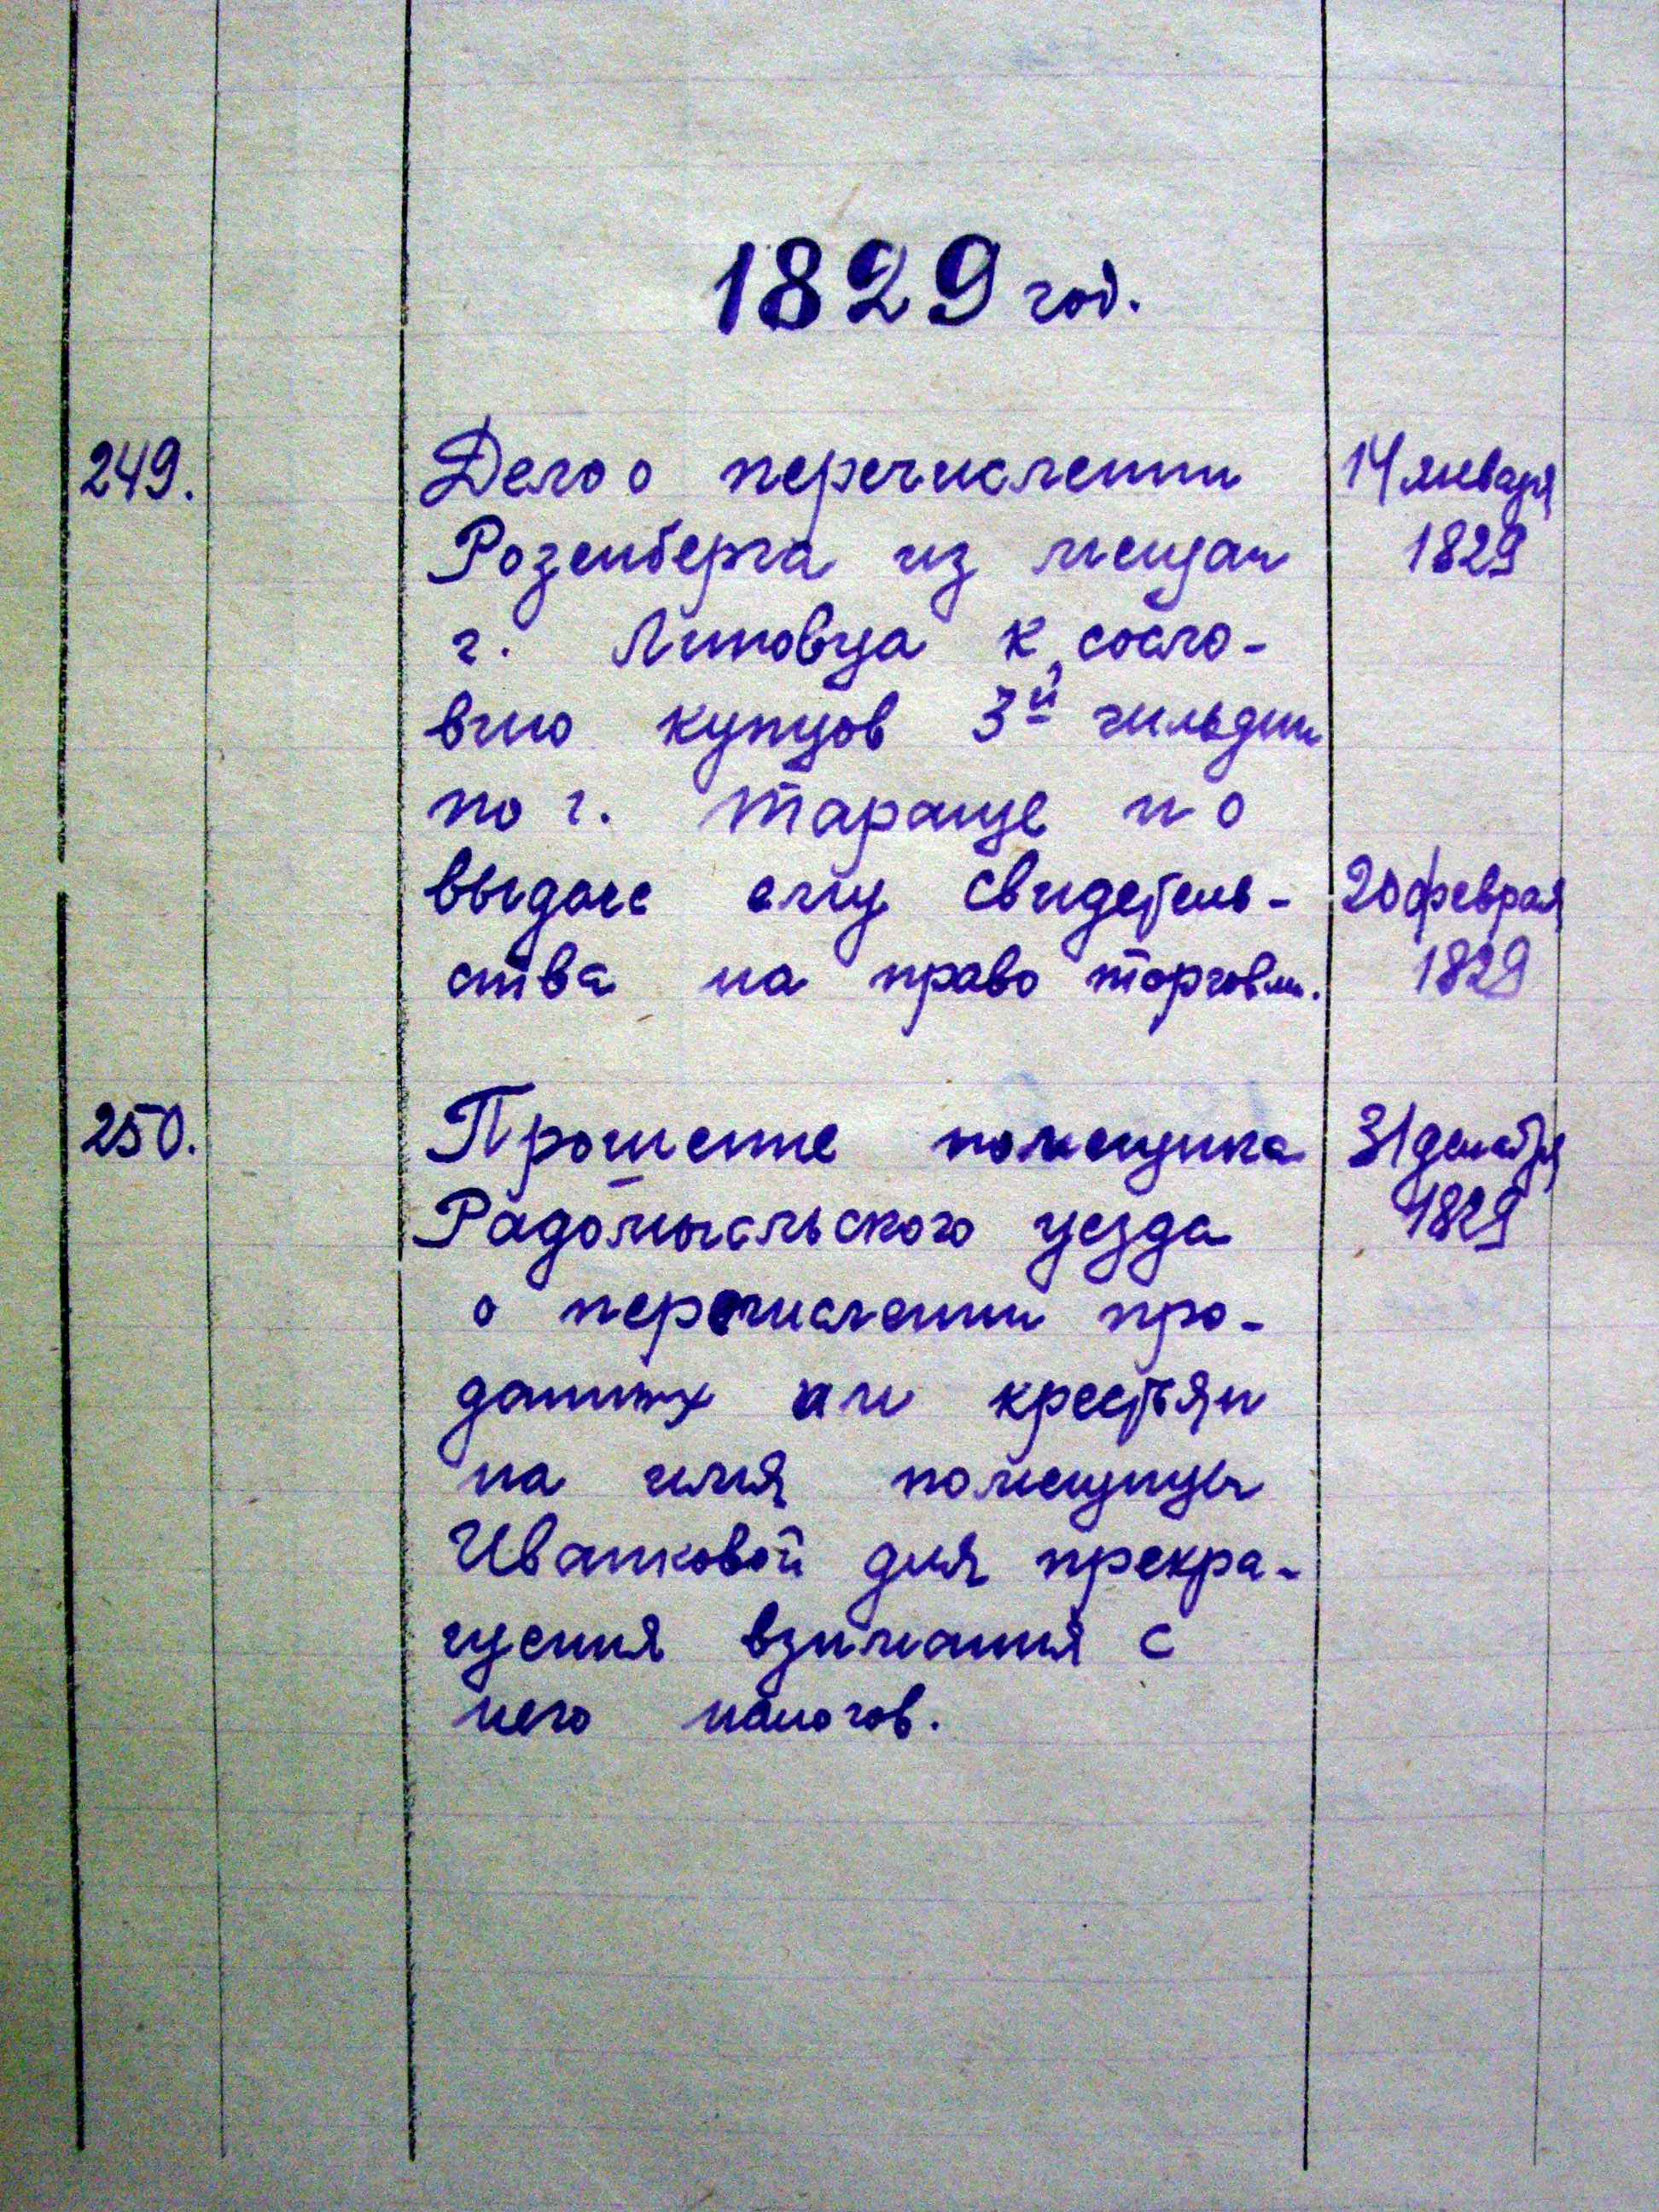 1829 год.
249. Дело о перечислении 14 января
Розенберга из мещан 1829
г. Липовца к сосло-
вию купцов 3й гильдии
по г. Тараще и о
выдаче ему свидетель- 20 февраля
ства на право торговли. 1829
250. Прошение помещика 31 декабря
Радомысльского уезда 1829
о перечислении про-
данных им крестьян
на имя помещицы
Иванковой для прекра-
щения взимания с
него налогов.